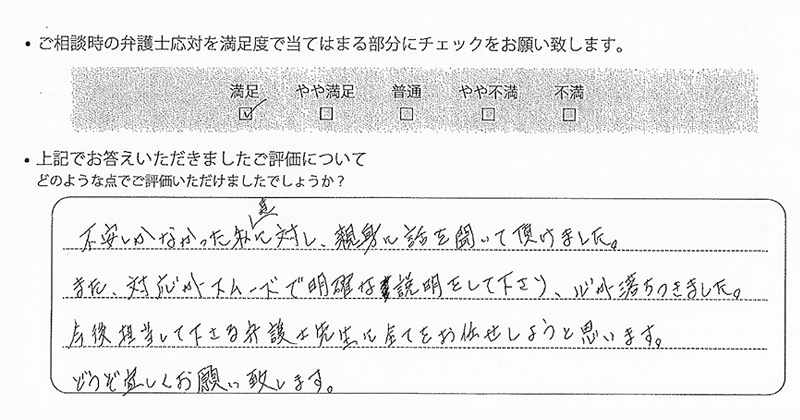 ・ご相談時の弁護士応対を満足度で当てはまる部分にチェックをお願い致します。
満足 やや満足 普通 やや不満 不満
☑ ☐ ☐ ☐ ☐
・上記でお答えいただきましたご評価について
どのような点でご評価いただけましたでしょうか？
不安しかなかった私に対し、親身に話を聞いて頂けました。
また、対応がスムーズで明確な説明をして下さり、心が落ちつきました。
今後担当して下さる弁護士先生に全てをお任せしようと思います。
どうぞ宜しくお願い致します。